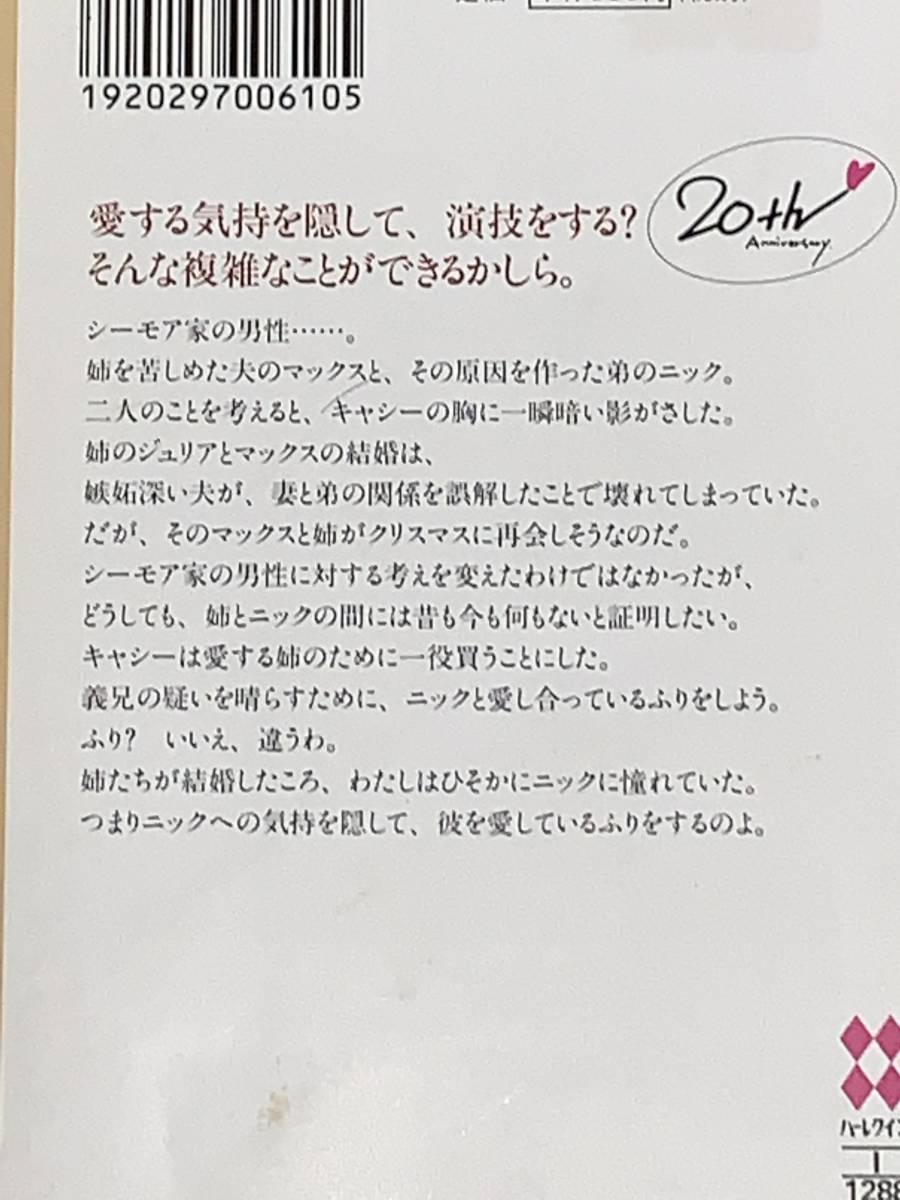 1920297006105
20th
Anniversary.
愛する気持を隠して、演技をする?
そんな複雑なことができるかしら。
シーモア家の男性……。
姉を苦しめた夫のマックスと、その原因を作った弟のニック。
二人のことを考えると、キャシーの胸に一瞬暗い影がさした。
姉のジュリアとマックスの結婚は、
嫉妬深い夫が、妻と弟の関係を誤解したことで壊れてしまっていた。
だが、そのマックスと姉がクリスマスに再会しそうなのだ。
シーモア家の男性に対する考えを変えたわけではなかったが、
どうしても、姉とニックの間には昔も今も何もないと証明したい。
キャシーは愛する姉のために一役買うことにした。
義兄の疑いを晴らすために、ニックと愛し合っているふりをしよう。
ふり? いいえ、違うわ。
姉たちが結婚したころ、わたしはひそかにニックに憧れていた。
つまりニックへの気持を隠して、彼を愛しているふりをするのよ。
ハーレクイン
I
1288